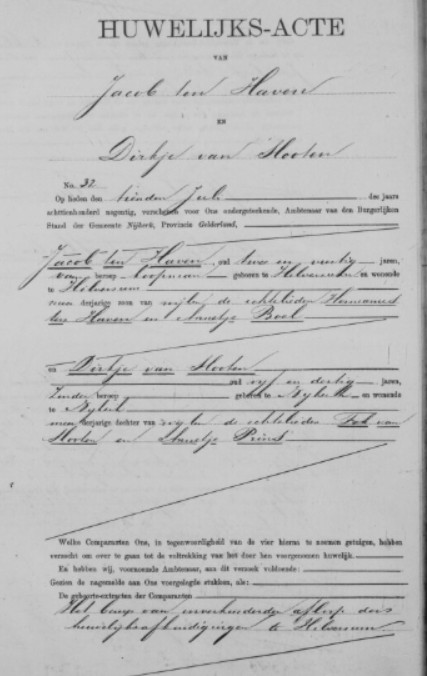 HUWELIJKS-ACTE
VAN
Jacob ten Haven
EN
Dirkje van Hooten
No. 32
Op heden den tienden Juli des jaars
achttienhonderd negentig, verschenen voor Ons ondergeteekende, Ambtenaar van den Burgerlijken
Stand der Gemeente Nijkerk, Provincie Gelderland,
Jacob ten Haven, oud twee en veertig jaren,
van beroep koopman geboren te Hilversum en wonende
te Hilversum
meerderjarige zoon van wijlen de echtelieden Hermannes
ten Haven en Aaneltje Boel
en Dirkje van Hooten
oud vyf en dertig jaren,
Zonder beroep geboren te Nykerk en wonende
te Nykerk
meerderjarige dochter van wylen de echtelieden van
Hooten en Aaneltje
Welke Comparanten Ons, in tegenwoordigheid van de vier hierna te noemen getuigen, hebben
verzocht om over te gaan tot de voltrekking van het door hen voorgenomen huwelijk.
En hebben wij, voornoemde Ambtenaar, aan dit verzoek voldoende:
Gezien de nagemelde aan Ons voorgelegde stukken, als:
De geboorte-extracten der Comparanten
Het bewys van onverhinderden afloop der
huwelijksafkondigingen te Hilversum